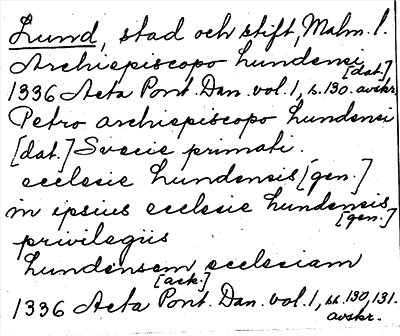 Lund, stad och stift, Malm. l.
Archiepiscopo lundensi [dat.]
1336 Acta Pont. Dan. vol. 1, s. 130. avskr.
Petro archiepiscopo lundensi
[dat.] Svecie primati.
ecclesie lundensis [gen.]
in ipsius ecclesie lundensis [gen.]
privilegiis
lundensem ecclesiam
[ack.]
1336 Acta Pont. Dan. vol. 1, ss. 130, 131.
avskr.